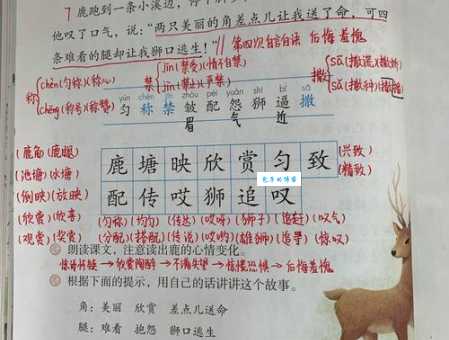 7 鹿跑到一条小溪边，停下脚步
他叹了口气，说：“两只美丽的角差点儿让我送了命，可四
条难看的腿却让我狮口逃生！” 第四次自言自语 后悔羞愧
称 chèn(匀称)(称心) 禁 jīn(禁受)(情不自禁) 撒 sā(撒谎)
chēng(称号)(称赞) jìn(禁止) sǎ(撒种)
yún chèn jīn zhòu pèi yuàn shī bī sā
匀 称 禁 皱 配 怨 狮 逼 撒
眉 气 近
(鹿角)(鹿腿) 鹿 塘 映 欣 赏 匀 致 (兴致)
(池塘)(水塘) (精致)
(倒映)(放映) 配 传 哎 狮 追 叹
(欣赏)(欣喜) (匀称)(均匀)(传达)(哎呀)(狮子)(追赶)(叹气)
(观赏)(奖赏) (分配)(搭配)(传说)(哎哟)(雄狮)(追寻)(惊叹)
朗读课文，注意读出鹿的心情变化。
→欣赏陶醉→不满失望→惊慌恐惧→后悔羞愧
根据下面的提示，用自己的话讲讲这个故事。
角：美丽 欣赏 差点儿送命
腿：难看 抱怨 狮口逃生